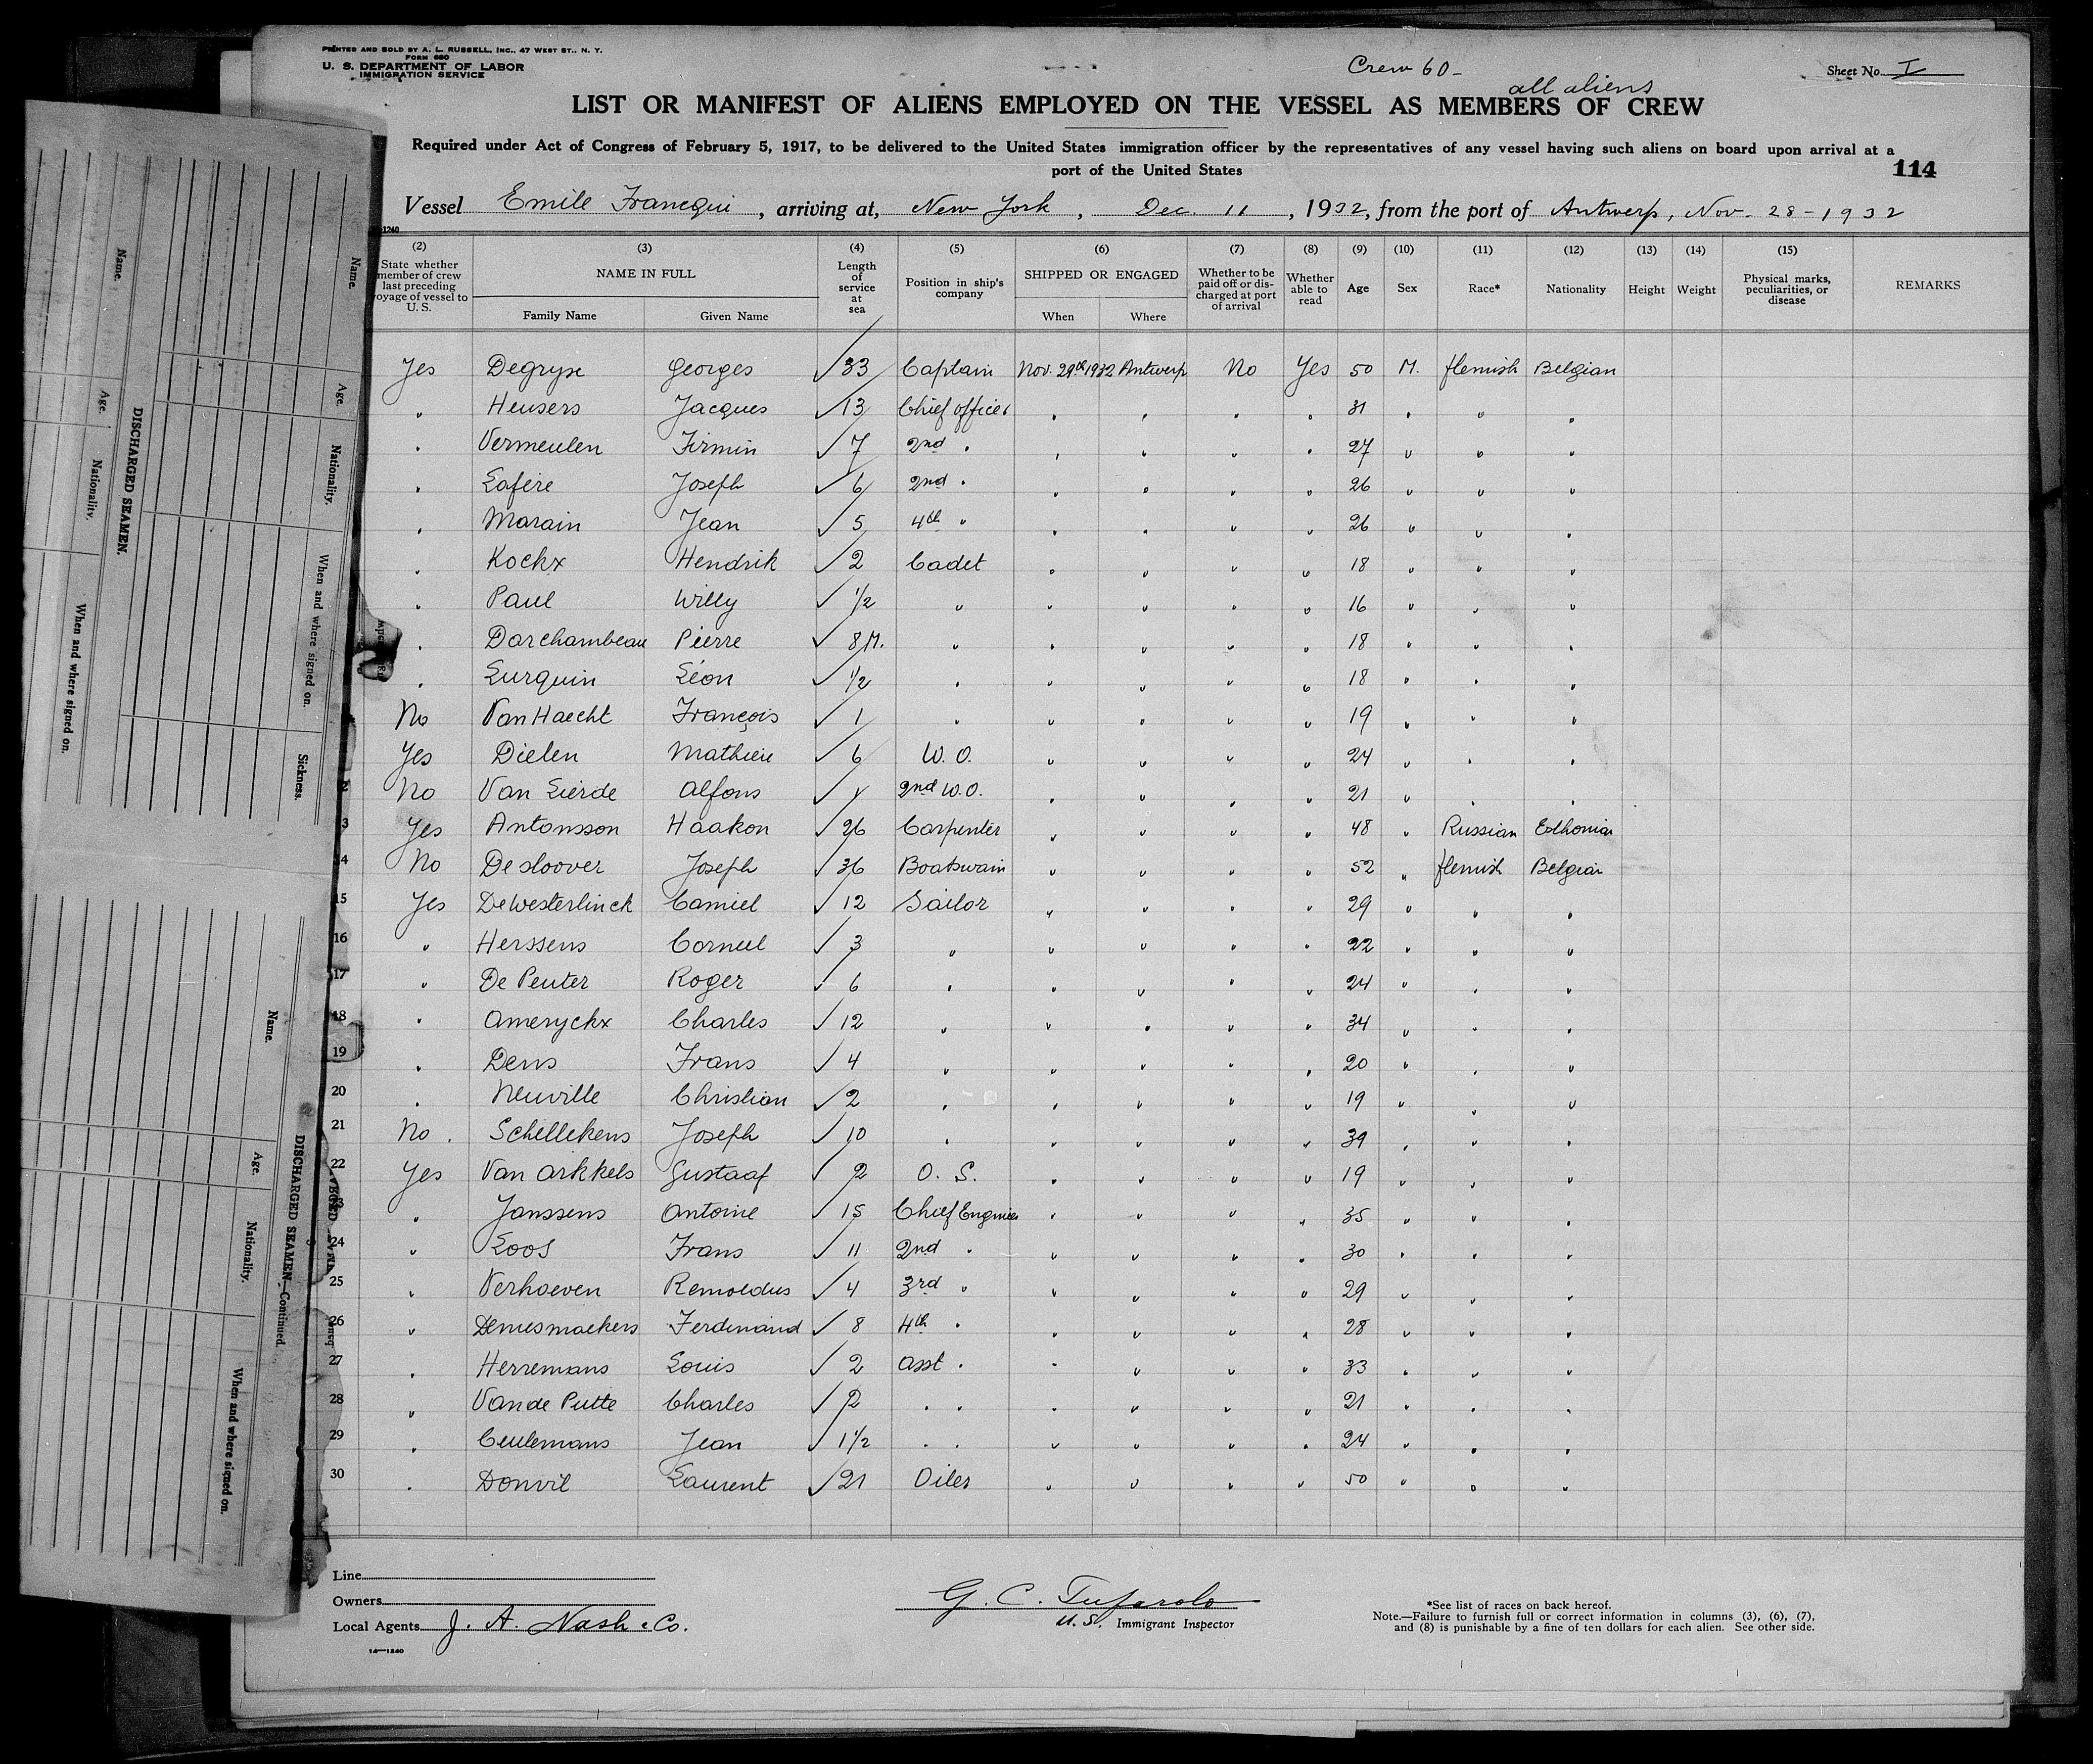 PRINTED AND SOLD BY A. L. RUSSELL, INC., 47 WEST ST., N. Y.
FORM 680
U. S. DEPARTMENT OF LABOR
IMMIGRATION SERVICE
Crew 60 -
all aliens
Sheet No. I
LIST OR MANIFEST OF ALIENS EMPLOYED ON THE VESSEL AS MEMBERS OF CREW
Required under Act of Congress of February 5, 1917, to be delivered to the United States immigration officer by the representatives of any vessel having such aliens on board upon arrival at a
port of the United States
114
Vessel Emile Francqui, arriving at, New York, Dec. 11, 1932, from the port of Antwerp, Nov. 28 - 1932
(2) State whether member of crew last preceding voyage of vessel to U. S. (3) NAME IN FULL Family Name Given Name (4) Length of service at sea (5) Position in ship's company (6) SHIPPED OR ENGAGED When Where (7) Whether to be paid off or discharged at port of arrival (8) Whether able to read (9) Age (10) Sex (11) Race* (12) Nationality (13) Height (14) Weight (15) Physical marks, peculiarities, or disease REMARKS
Yes Degryse Georges √ 33 Captain Nov. 29th 1932 Antwerp No Yes 50 M. flemish Belgian
" Heusers Jacques √ 13 Chief officer " " " " 31 " " "
" Vermeulen Firmin √ 7 2nd " " " " " 27 " " "
" Lafère Joseph √ 6 2nd " " " " " 26 " " "
" Marain Jean √ 5 4th " " " " " 26 " " "
" Kockx Hendrik √ 2 Cadet " " " " 18 " " "
" Paul Willy √ 1/2 " " " " " 16 " " "
" Darchambeau Pierre √ 8 M. " " " " " 18 " " "
" Lurquin Léon √ 1/2 " " " " " 18 " " "
No Van Haecht François √ 1 " " " " " 19 " " "
Yes Dielen Mathieu √ 6 W. O. " " " " 24 " " "
2 No Van Lierde Alfons √ 2nd W. O. " " " " 21 " " "
3 Yes Antonsson Haakon √ 26 Carpenter " " " " 48 " Russian Esthonian
4 No De sloover Joseph √ 36 Boatswain " " " " 52 " flemish Belgian
15 Yes De Westerlinck Camiel √ 12 Sailor " " " " 29 " " "
16 " Herssens Corneel √ 3 " " " " " 22 " " "
17 " De Peuter Roger √ 6 " " " " " 24 " " "
18 " Ameryckx Charles √ 12 " " " " " 34 " " "
19 " Dens Frans √ 4 " " " " " 20 " " "
20 " Neuville Christian √ 2 " " " " " 19 " " "
21 No. Schellekens Joseph √ 10 " " " " " 39 " " "
22 Yes Van Arkkels Gustaaf √ 2 O. S. " " " " 19 " " "
3 " Janssens Antoine √ 15 Chief Engineer " " " " 35 " " "
24 " Loos Frans √ 11 2nd " " " " " 30 " " "
25 " Verhoeven Remoldus √ 4 3rd " " " " " 29 " " "
26 " Demesmaekers Ferdinand √ 8 4th " " " " " 28 " " "
27 " Herremans Louis √ 2 asst " " " " " 33 " " "
28 " Van de Putte Charles √ 2 " " " " " " 21 " " "
29 " Ceulemans Jean √ 1 1/2 " " " " " " 24 " " "
30 " Donvil Laurent √ 21 Oiler " " " " 50 " " "
Line
Owners
Local Agents J. A. Nash & Co.
14—1240
G. C. Tufarolo
U. S. Immigrant Inspector
*See list of races on back hereof.
Note.—Failure to furnish full or correct information in columns (3), (6), (7),
and (8) is punishable by a fine of ten dollars for each alien. See other side.
DISCHARGED SEAMEN.
Name. Age. Nationality. When and where signed on. Sickness.
Name. Age. Nationality. When and where signed on.
DISCHARGED SEAMEN—Continued.
Name. Age. Nationality. When and where signed on.